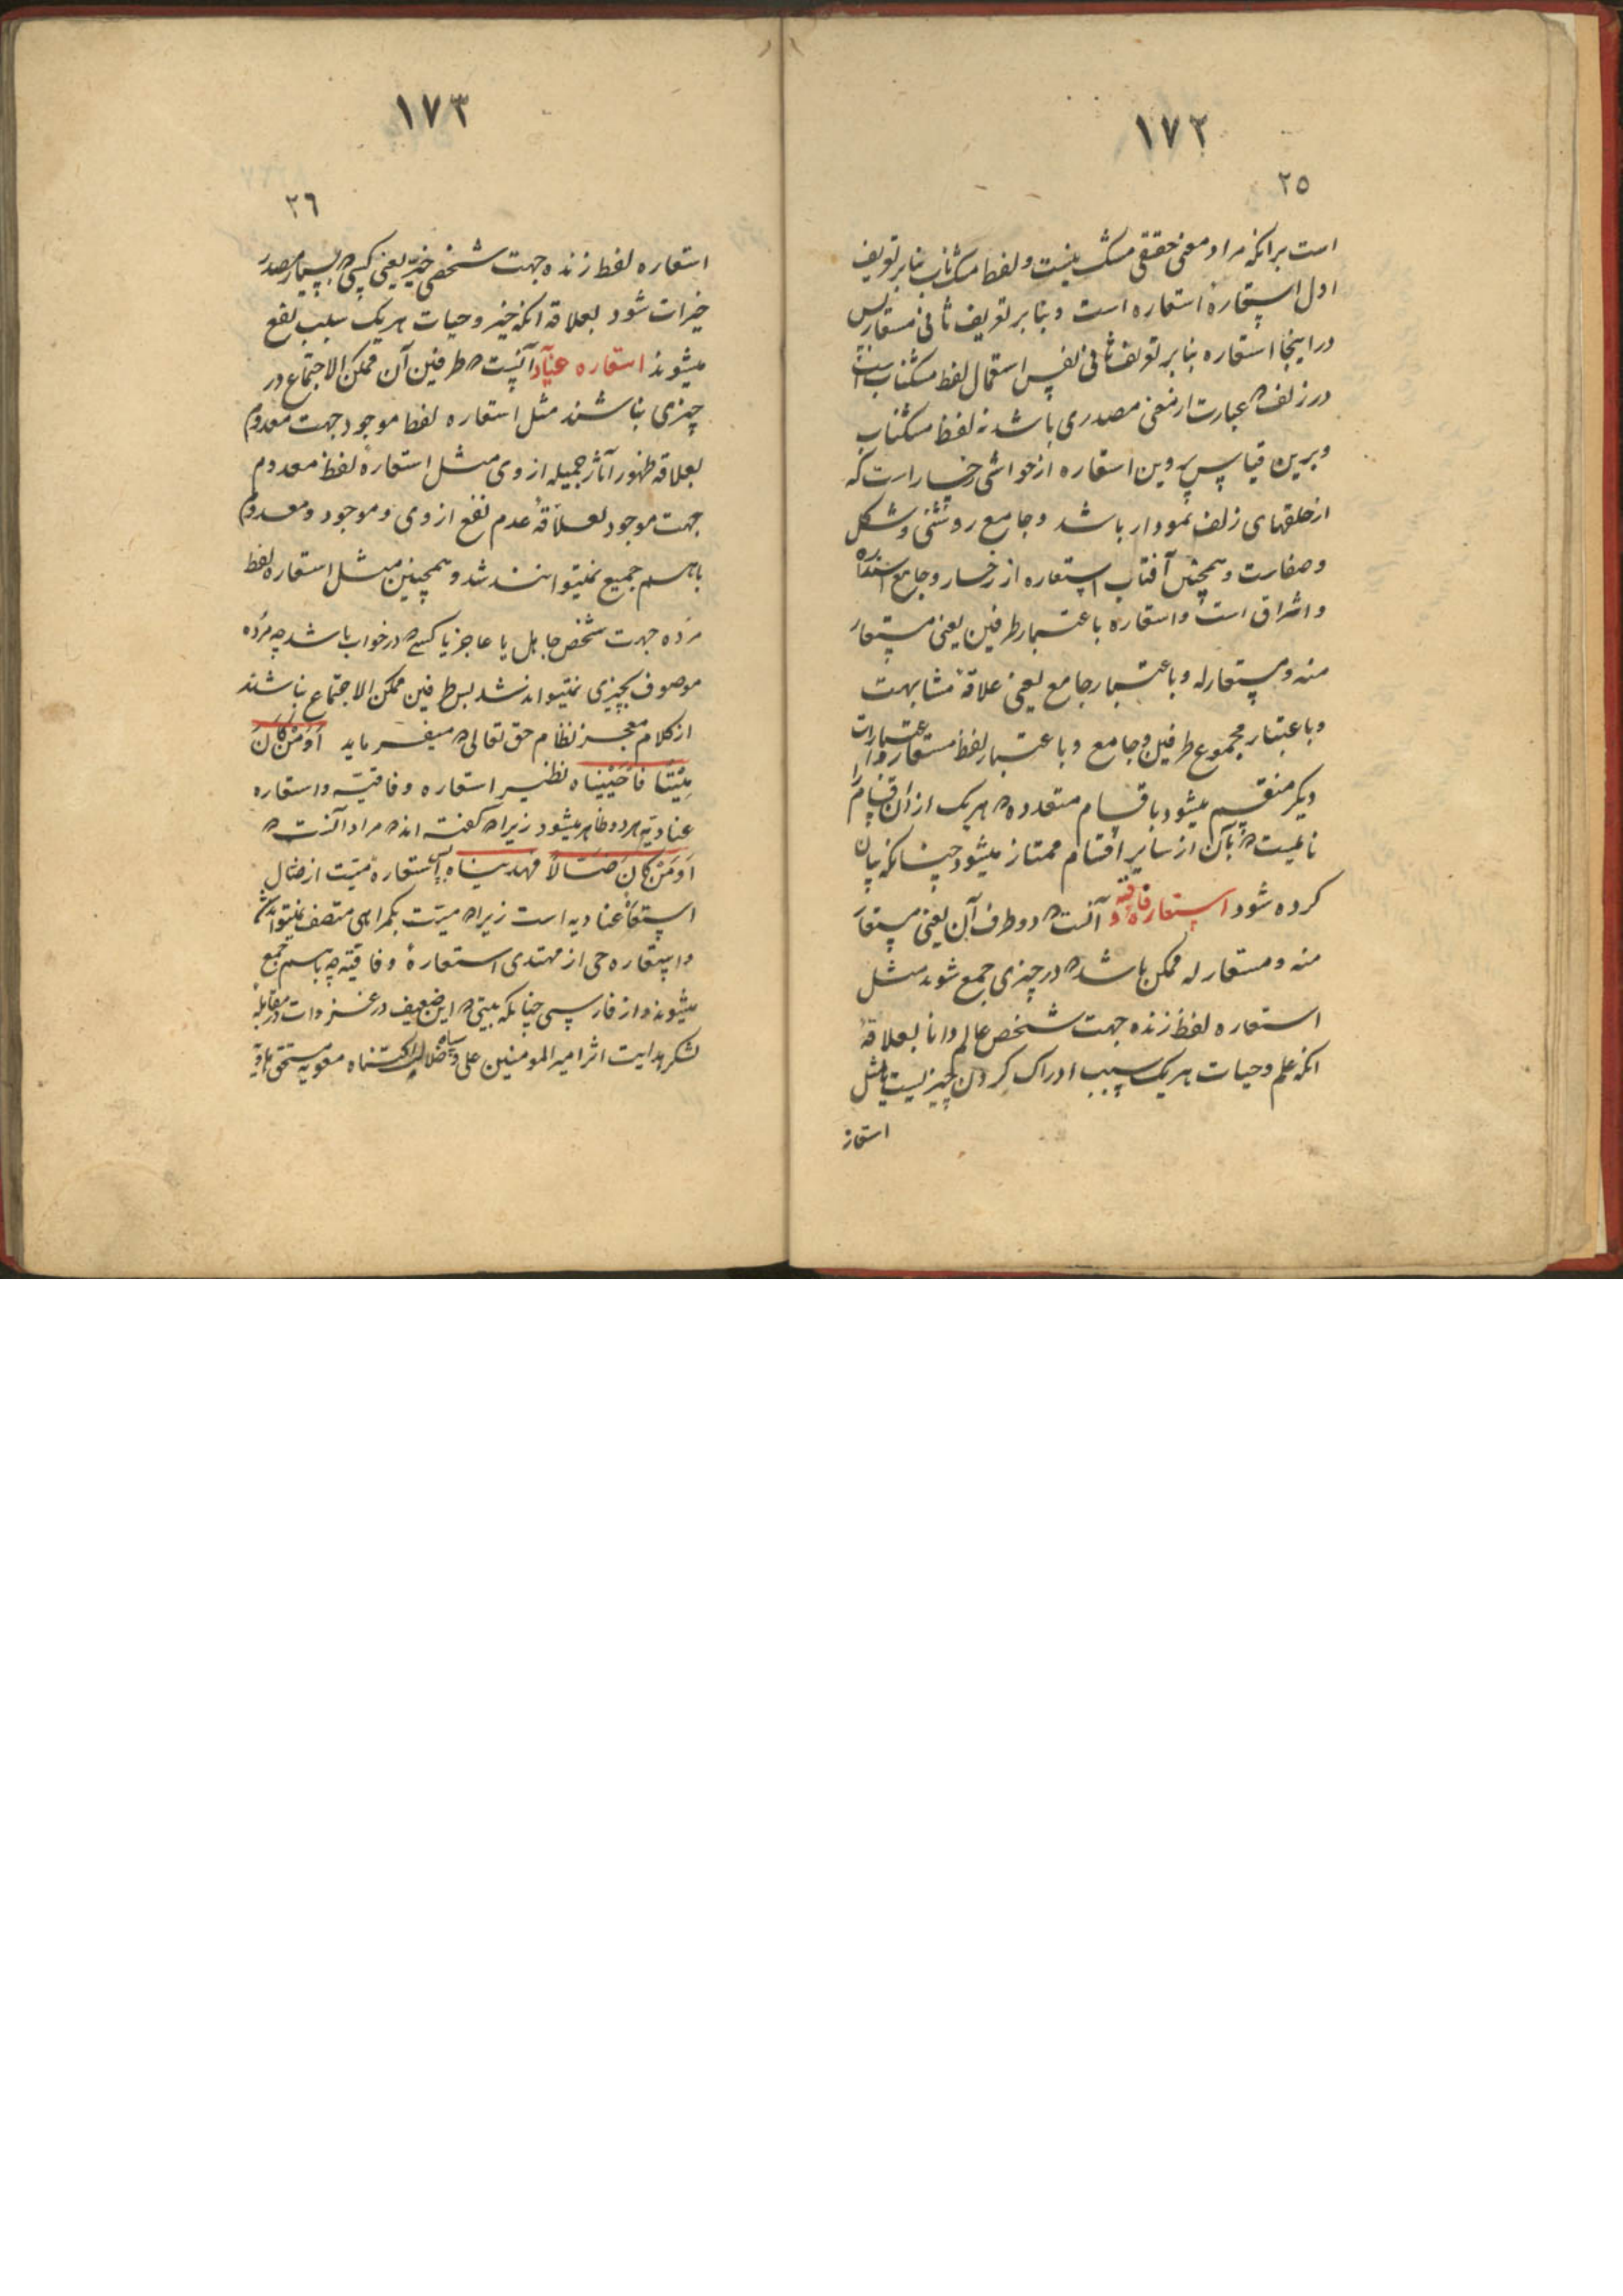 ١٧٢
٢٥
است برانکه مراد معنی حقیقی مشک نیست و لفظ مشک ناب بنابر تعریف
اول استعاره است و بنابر تعریف ثانی مستعار پس
در اینجا استعاره بنابر تعریف ثانی نفس استعمال لفظ مشکناب است
در زلف که عبارت از معنی مصدری باشد نه لفظ مشکناب
و برین قیاس پروین استعاره از حواشی رخسار است که
از حلقهای زلف نمودار باشد و جامع روشنی و شکل
و صفارت و همچنین آفتاب استعاره از رخسار و جامع
و اشراق است و استعاره باعتبار طرفین یعنی مستعار
منه و مستعار له و باعتبار جامع یعنی علاقهٔ مشابهت
و باعتبار مجموع طرفین و جامع و باعتبار لفظ مستعار و اعتبارات
دیکر منقسم میشود باقسام متعدده که هر یک از ان اقسام را
نامیست که بآن از سایر اقسام ممتاز میشود چنانکه بیان
کرده شود استعاره وفاقیه و آنست که دو طرف آن یعنی مستعار
منه و مستعار له ممکن باشد که در چیزی جمع شوند مثل
استعاره لفظ زنده جهت شخص عالم و دانا بعلاقهٔ
انکه علم و حیات هر یک سبب ادراک کردن چیزیست یا مثل
استعار
١٧٣
٢٦
استعاره لفظ زنده جهت شخص خیّر یعنی کسی که بسیار مصدر
خیرات شود بعلاقه انکه خیر و حیات هر یک سبب نفع
میشوند استعاره عنادیه آنست که طرفین آن ممکن الاجتماع در
چیزی نباشند مثل استعاره لفظ موجود جهت معدوم
بعلاقه ظهور آثار جمیله از وی مثل استعاره لفظ معدوم
جهت موجود بعلاقهٔ عدم نفع از وی و موجود و معدوم
باهم جمیع نمیتوانند شد و همچنین مثل استعاره لفظ
مرده جهت شخص جاهل یا عاجز یا کسی که در خواب باشد چه مرده
موصوف بچیزی نمیتواند شد پس طرفین ممکن الاجتماع نباشند
از کلام معجز نظام حق تعالی که میفرماید اَوَمَنْ کَانَ
مَیْتًا فَاَحْیَیْنَاه نظیر استعاره وفاقیّه و استعاره
عنادیّه هر دو ظاهر میشود زیرا که گفته اند که مراد آنست که
اَوَمَنْ کَانَ ضَالّاً فهدیناه پس استعارهٔ میّت از ضال
استعاره عنادیه است زیرا که میّت بکمراهی متصف نمیتواند شد
و استعاره حی از مهتدی استعارهٔ وفاقیّه چه باهم جمع
میشوند و از فارسی چنانکه بیتی که این ضعیف در غزوات در مقابلهٔ
لشکر هدایت اثر امیر المومنین علی و سپاه ضلالت معویه